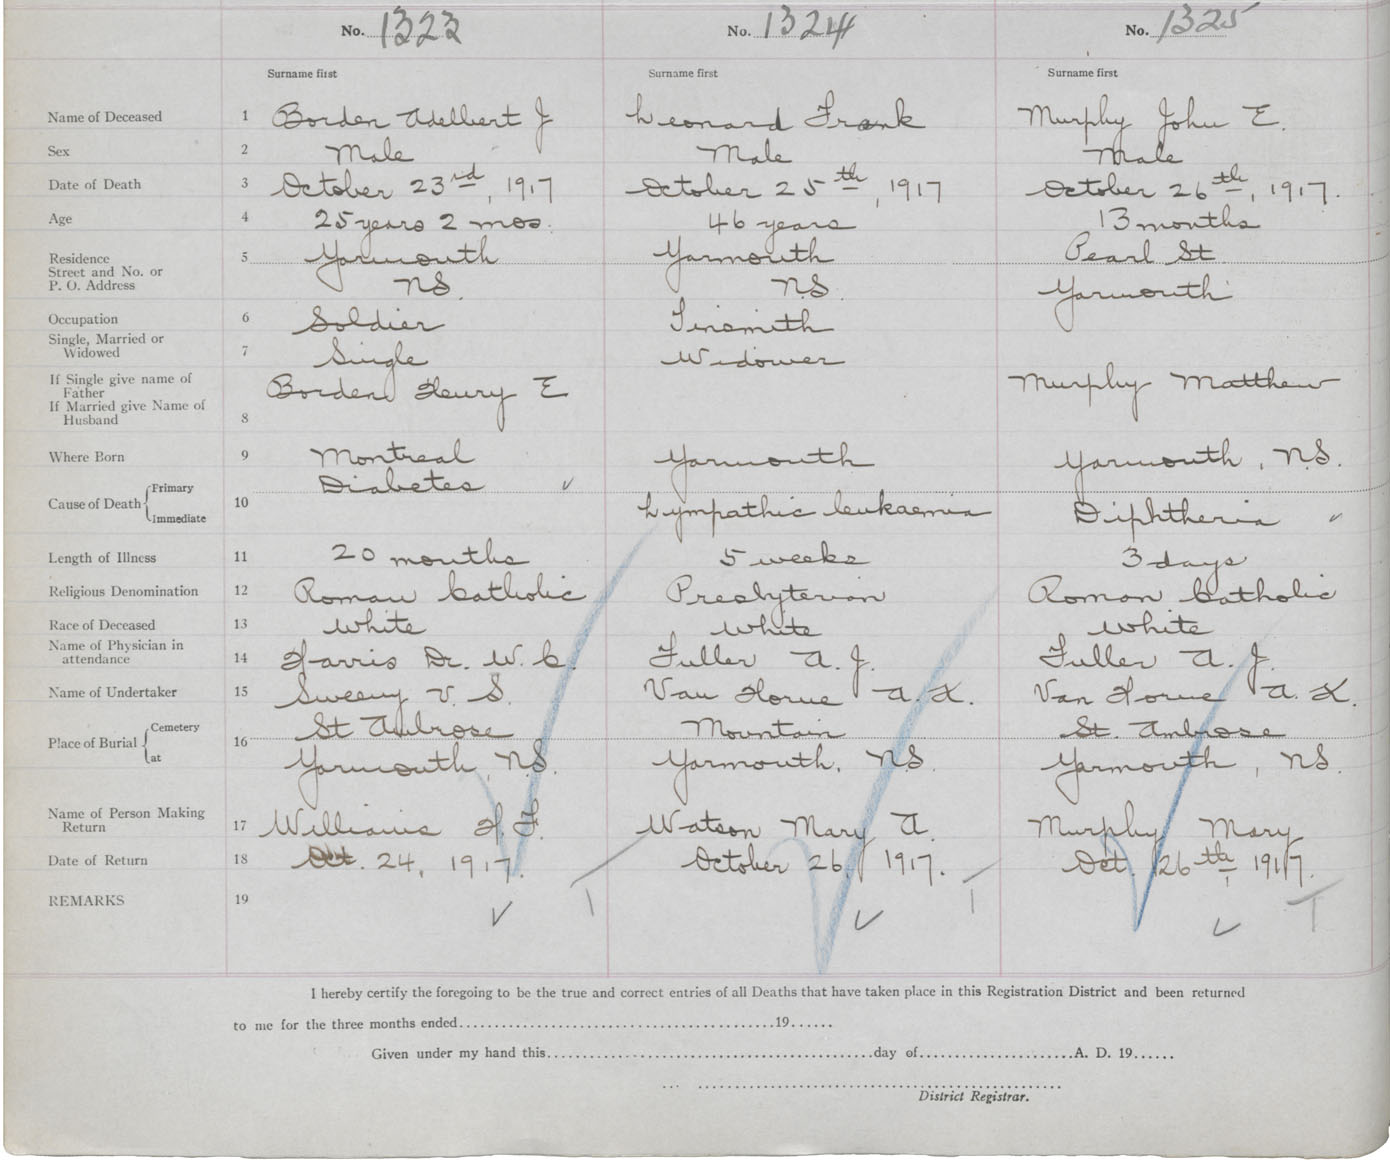 No. 1323 No. 1324 No. 1325
Surname first Surname first Surname first
Name of Deceased 1 Borden Adelbert J Leonard Frank Murphy John E.
Sex 2 Male Male Male
Date of Death 3 October 23rd, 1917 October 25th, 1917 October 26th, 1917.
Age 4 25 years 2 mos. 46 years 13 months
Residence 5 Yarmouth Yarmouth Pearl St
Street and No. or
P. O. Address N.S. N.S. Yarmouth
Occupation 6 Soldier Tinsmith
Single, Married or
Widowed 7 Single Widower
If Single give name of
Father Borden Henry E Murphy Matthew
If Married give Name of
Husband 8
Where Born 9 Montreal Yarmouth Yarmouth, N.S.
Primary Diabetes
Cause of Death 10 Lympathic leukaemia Diphtheria
Immediate
Length of Illness 11 20 months 5 weeks 3 days
Religious Denomination 12 Roman Catholic Presbyterian Roman Catholic
Race of Deceased 13 White White White
Name of Physician in
attendance 14 Harris Dr. W. C. Fuller A. J. Fuller A. J.
Name of Undertaker 15 Sweeny V. S. Van Horne A. K. Van Horne A. K.
Cemetery St Ambrose Mountain St. Ambrose
Place of Burial 16
at Yarmouth, N.S. Yarmouth, N.S. Yarmouth, N.S.
Name of Person Making
Return 17 Williams H. F. Watson Mary A. Murphy Mary
Date of Return 18 Oct. 24, 1917. October 26, 1917. Oct. 26th, 1917.
REMARKS 19
I hereby certify the foregoing to be the true and correct entries of all Deaths that have taken place in this Registration District and been returned
to me for the three months ended..........19......
Given under my hand this..........day of..........A. D. 19......
District Registrar.